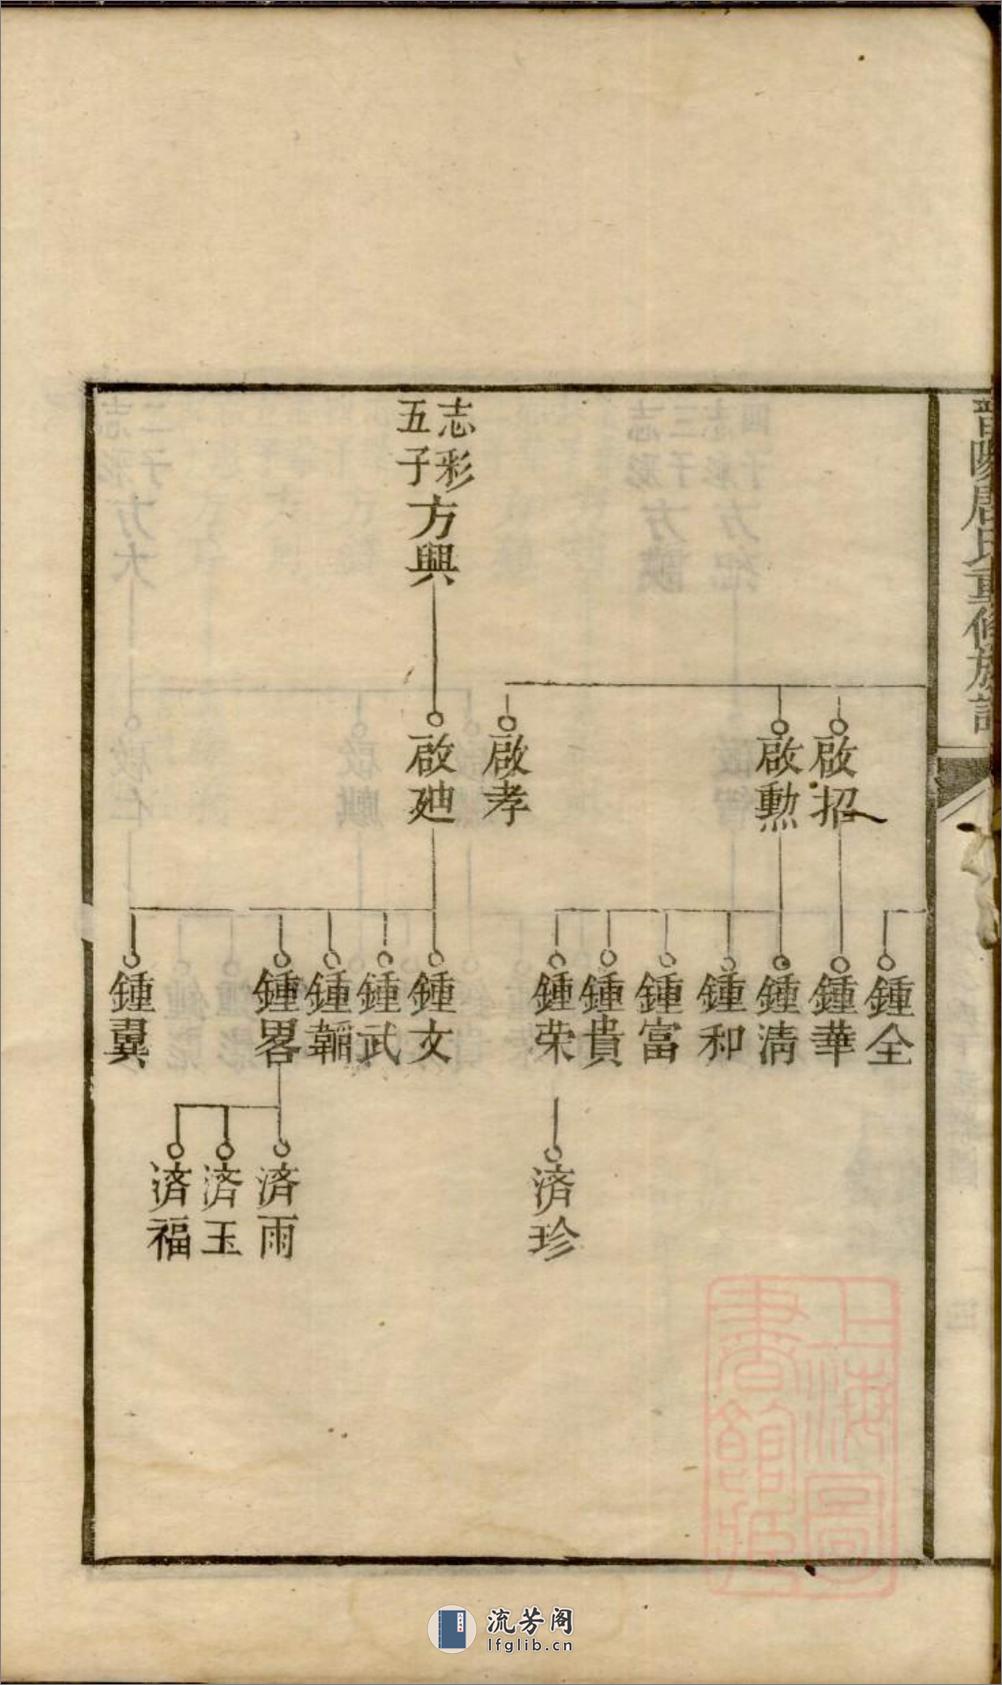 晉陵唐氏重修族譜
啟招
啟勲
啟孝
鍾全
鍾華
鍾清
鍾和
鍾富
鍾貴
鍾荣
济珍
志彩
五子
方興
啟廸
鍾文
鍾武
鍾韜
鍾畧
鍾翼
济雨
济玉
济福
上海圖
書館藏
流芳阁
lfglib.cn